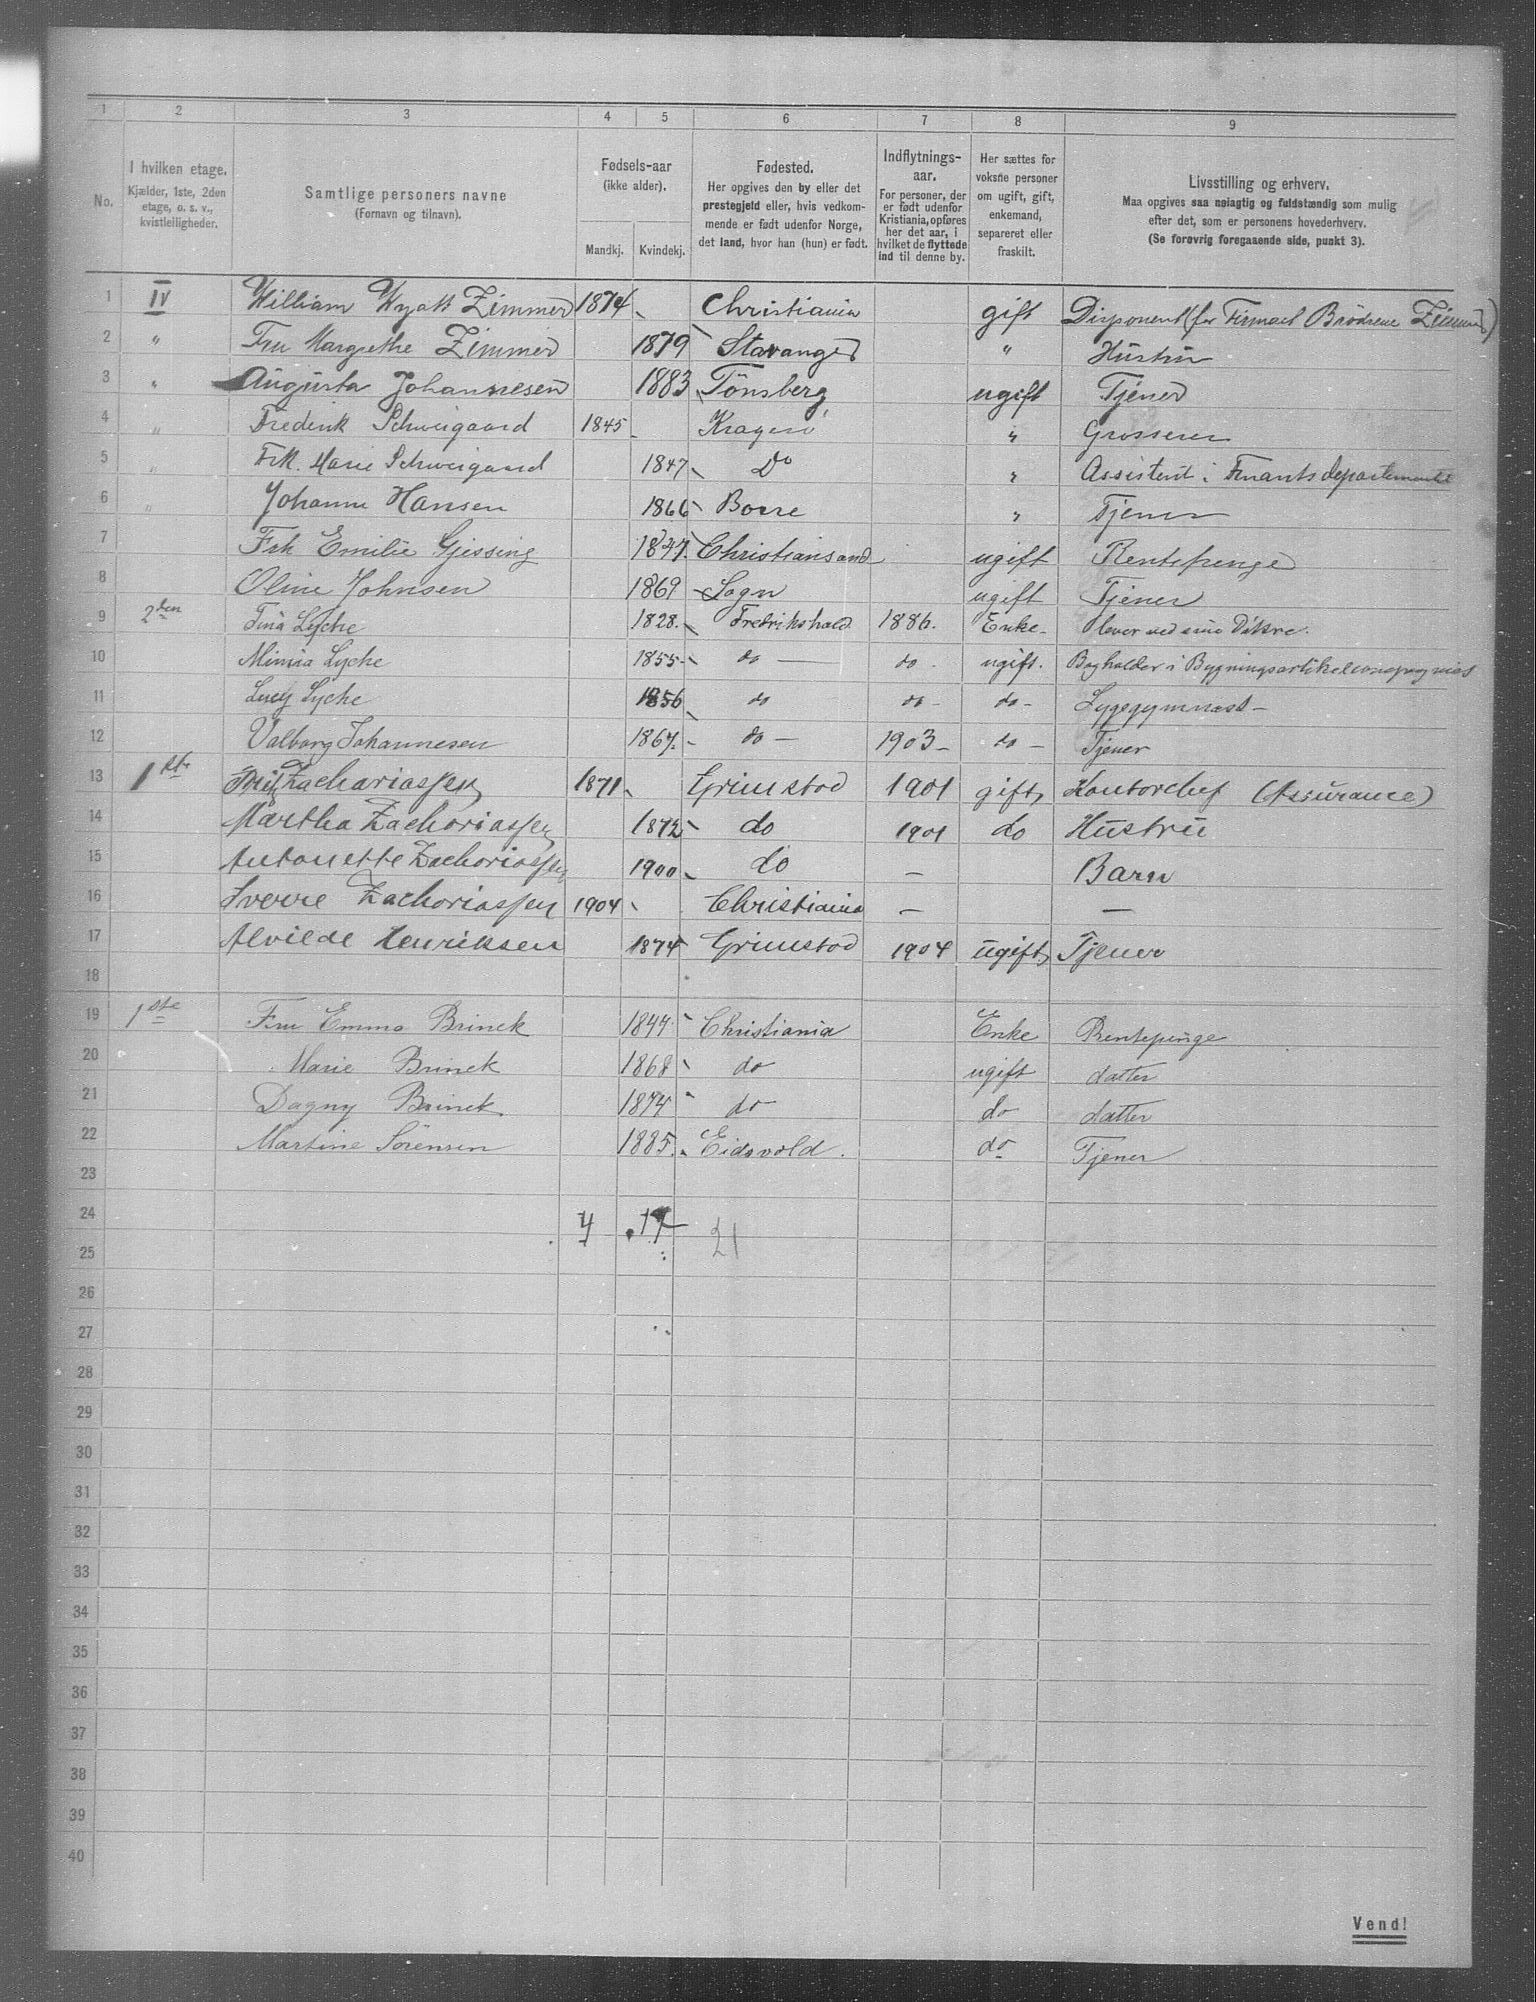 1 2 3 4 5 6 7 8 9
No.
I hvilken etage.
Kjælder, 1ste, 2den
etage, o. s. v.,
kvistleiligheder.
Samtlige personers navne
(Fornavn og tilnavn).
Fødsels-aar
(ikke alder).
Mandkj. Kvindekj.
Fødested.
Her opgives den by eller det
prestegjeld eller, hvis vedkom-
mende er født udenfor Norge,
det land, hvor han (hun) er født.
Indflytnings-
aar.
For personer, der
er født udenfor
Kristiania, opføres
her det aar, i
hvilket de flyttede
ind til denne by.
Her sættes for
voksne personer
om ugift, gift,
enkemand,
separeret eller
fraskilt.
Livsstilling og erhverv.
Maa opgives saa nøiagtig og fuldstændig som mulig
efter det, som er personens hovederhverv.
(Se forøvrig foregaaende side, punkt 3).
1 IV William Wyatt Zimmer 1874 Christiania gift Disponent (for Firmaet Brödrene Zimmer)
2 " Fru Margrethe Zimmer 1879 Stavanger " Hustru
3 " Augusta Johannesen 1883 Tönsberg ugift Tjener
4 " Frederik Schweigaard 1845 Kragerö " Grosserer
5 " Frk. Marie Schweigaard 1847 Do " Assistent i Finantsdepartementet
6 " Johanne Hansen 1866 Borre " Tjener
7 Frk Emilie Gjessing 1847 Christiansand ugift Rentepenge
8 Oline Johnsen 1869 Sogn ugift Tjener
9 2den Tina Lyche 1828. Fredrikshald 1886. Enke- lever ved sine Döttre.
10 Minnia Lyche 1855- do — do - ugift. Bogholder i
11 Lucy Lyche 1856 do do - do - Sygegymnast-
12 Valborg Johannesen 1867. do — 1903- do — Tjener
13 1ste Zachariassen 1871 Grimstad 1901 gift, Kontorchef (Assurance)
14 Martha Zachariassen 1872 do 1901 do Hustru
15 Antonette Zachariassen 1900 do — Barn
16 Sverre Zachariassen 1904 Christiania — —
17 Alvilde Henriksen 1874 Grimstad 1904 ugift, Tjener
18
19 1ste Fru Emma Brinck 1844 Christiania Enke Rentepenge
20 Marie Brinck 1868 do ugift datter
21 Dagny Brinck 1874 do do datter
22 Martine Sörensen 1885. Eidsvold. do Tjener
23
24 4 17 21
25
26
27
28
29
30
31
32
33
34
35
36
37
38
39
40
Vend!